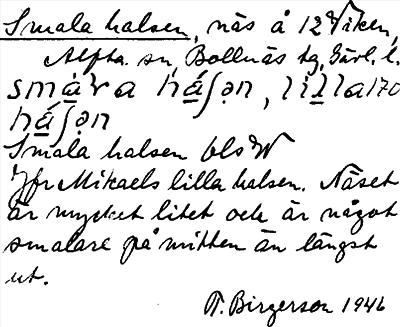 Smala halsen, näs å 12 Viken,
Alfta sn, Bollnäs tg, Gävl. l.
smạ̀ra há̠ʃən, lìl̠a 170
há̠ʃən
Smala halsen bls W
Jfr Mikaels lilla halsen. Näset
är mycket litet och är något
smalare på mitten än längst
ut.
T. Birgerson 1946